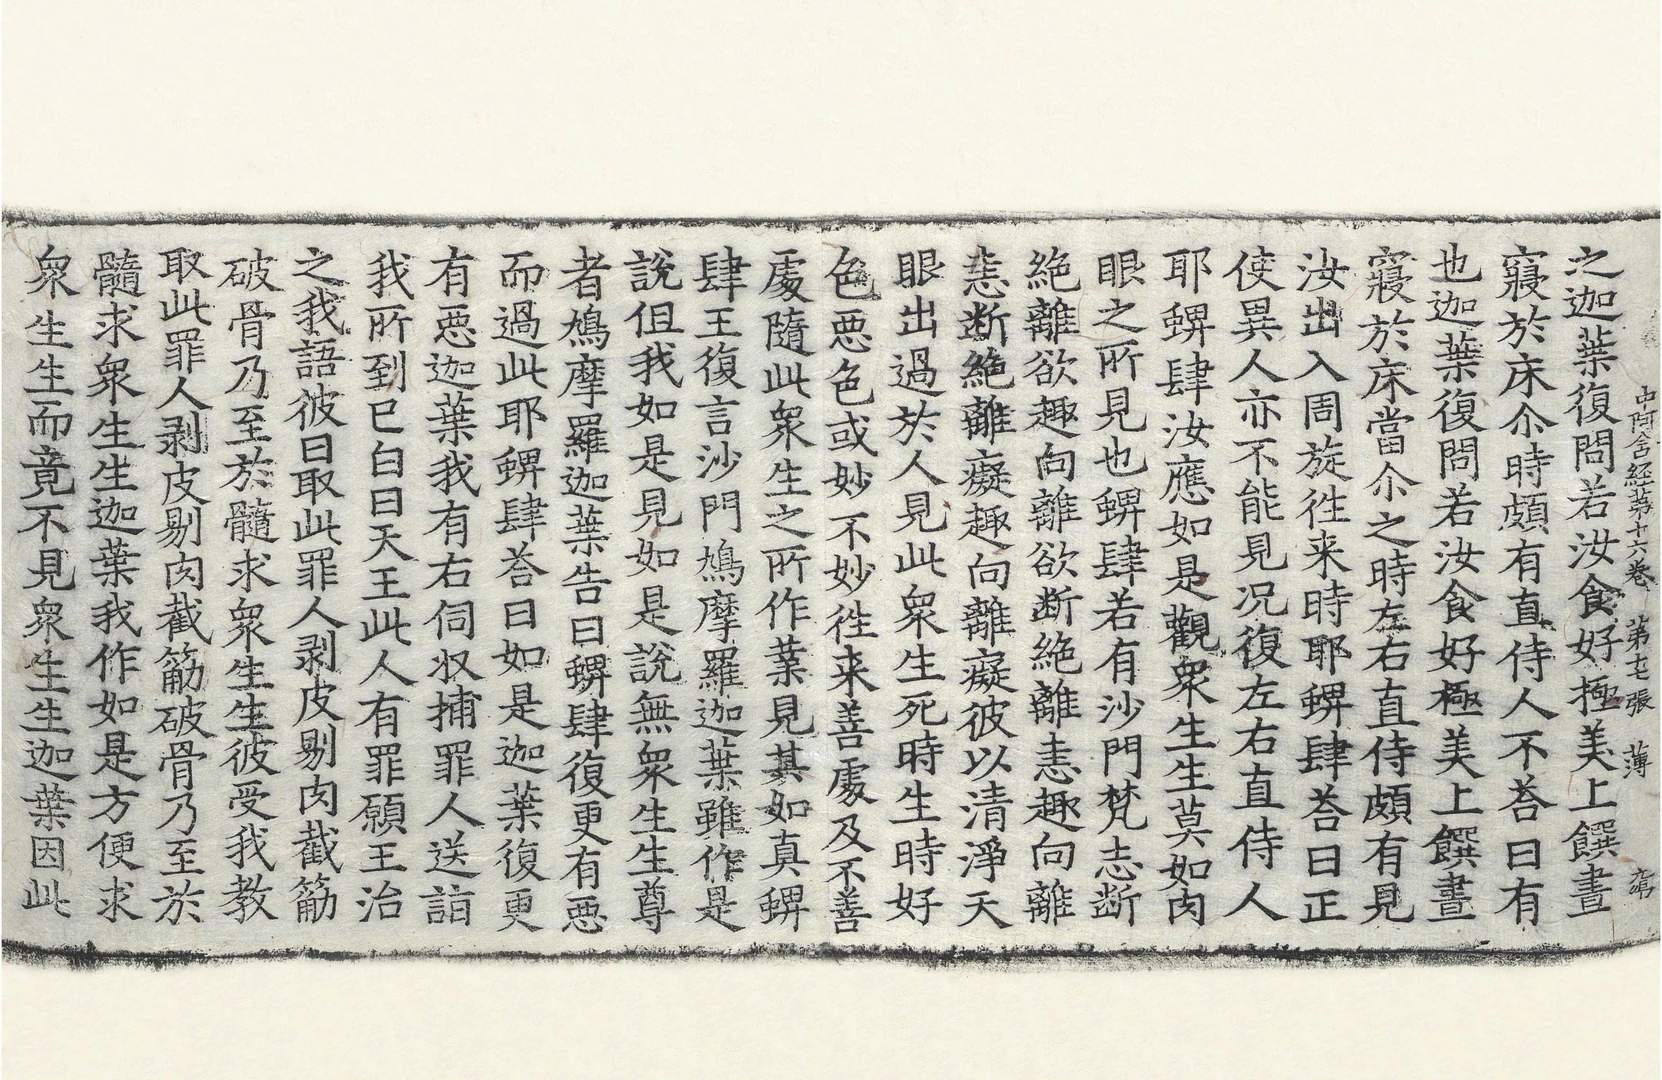 中阿含經第十六卷 第七張 薄
之迦葉復問若汝食好極美上饌晝
寢於床尒時頗有直侍人不荅曰有
也迦葉復問若汝食好極美上饌晝
寢於床當尒之時左右直侍頗有見
汝出入周旋往来時耶蜱肆荅曰正
使異人亦不能見况復左右直侍人
耶蜱肆汝應如是觀衆生生莫如肉
眼之所見也蜱肆若有沙門梵志断
絶離欲趣向離欲断絶離恚趣向離
恚断絶離癡趣向離癡彼以清淨天
眼出過於人見此衆生死時生時好
色惡色或妙不妙往来善處及不善
處隨此衆生之所作業見其如真蜱
肆王復言沙門鳩摩羅迦葉雖作是
說但我如是見如是說無衆生生尊
者鳩摩羅迦葉告曰蜱肆復更有惡
而過此耶蜱肆荅曰如是迦葉復更
有惡迦葉我有右伺收捕罪人送詣
我所到已白曰天王此人有罪願王治
之我語彼曰取此罪人剥皮剔肉截筋
破骨乃至於髓求衆生生彼受我教
取此罪人剥皮剔肉截筋破骨乃至於
髓求衆生生迦葉我作如是方便求
衆生生而竟不見衆生生迦葉因此